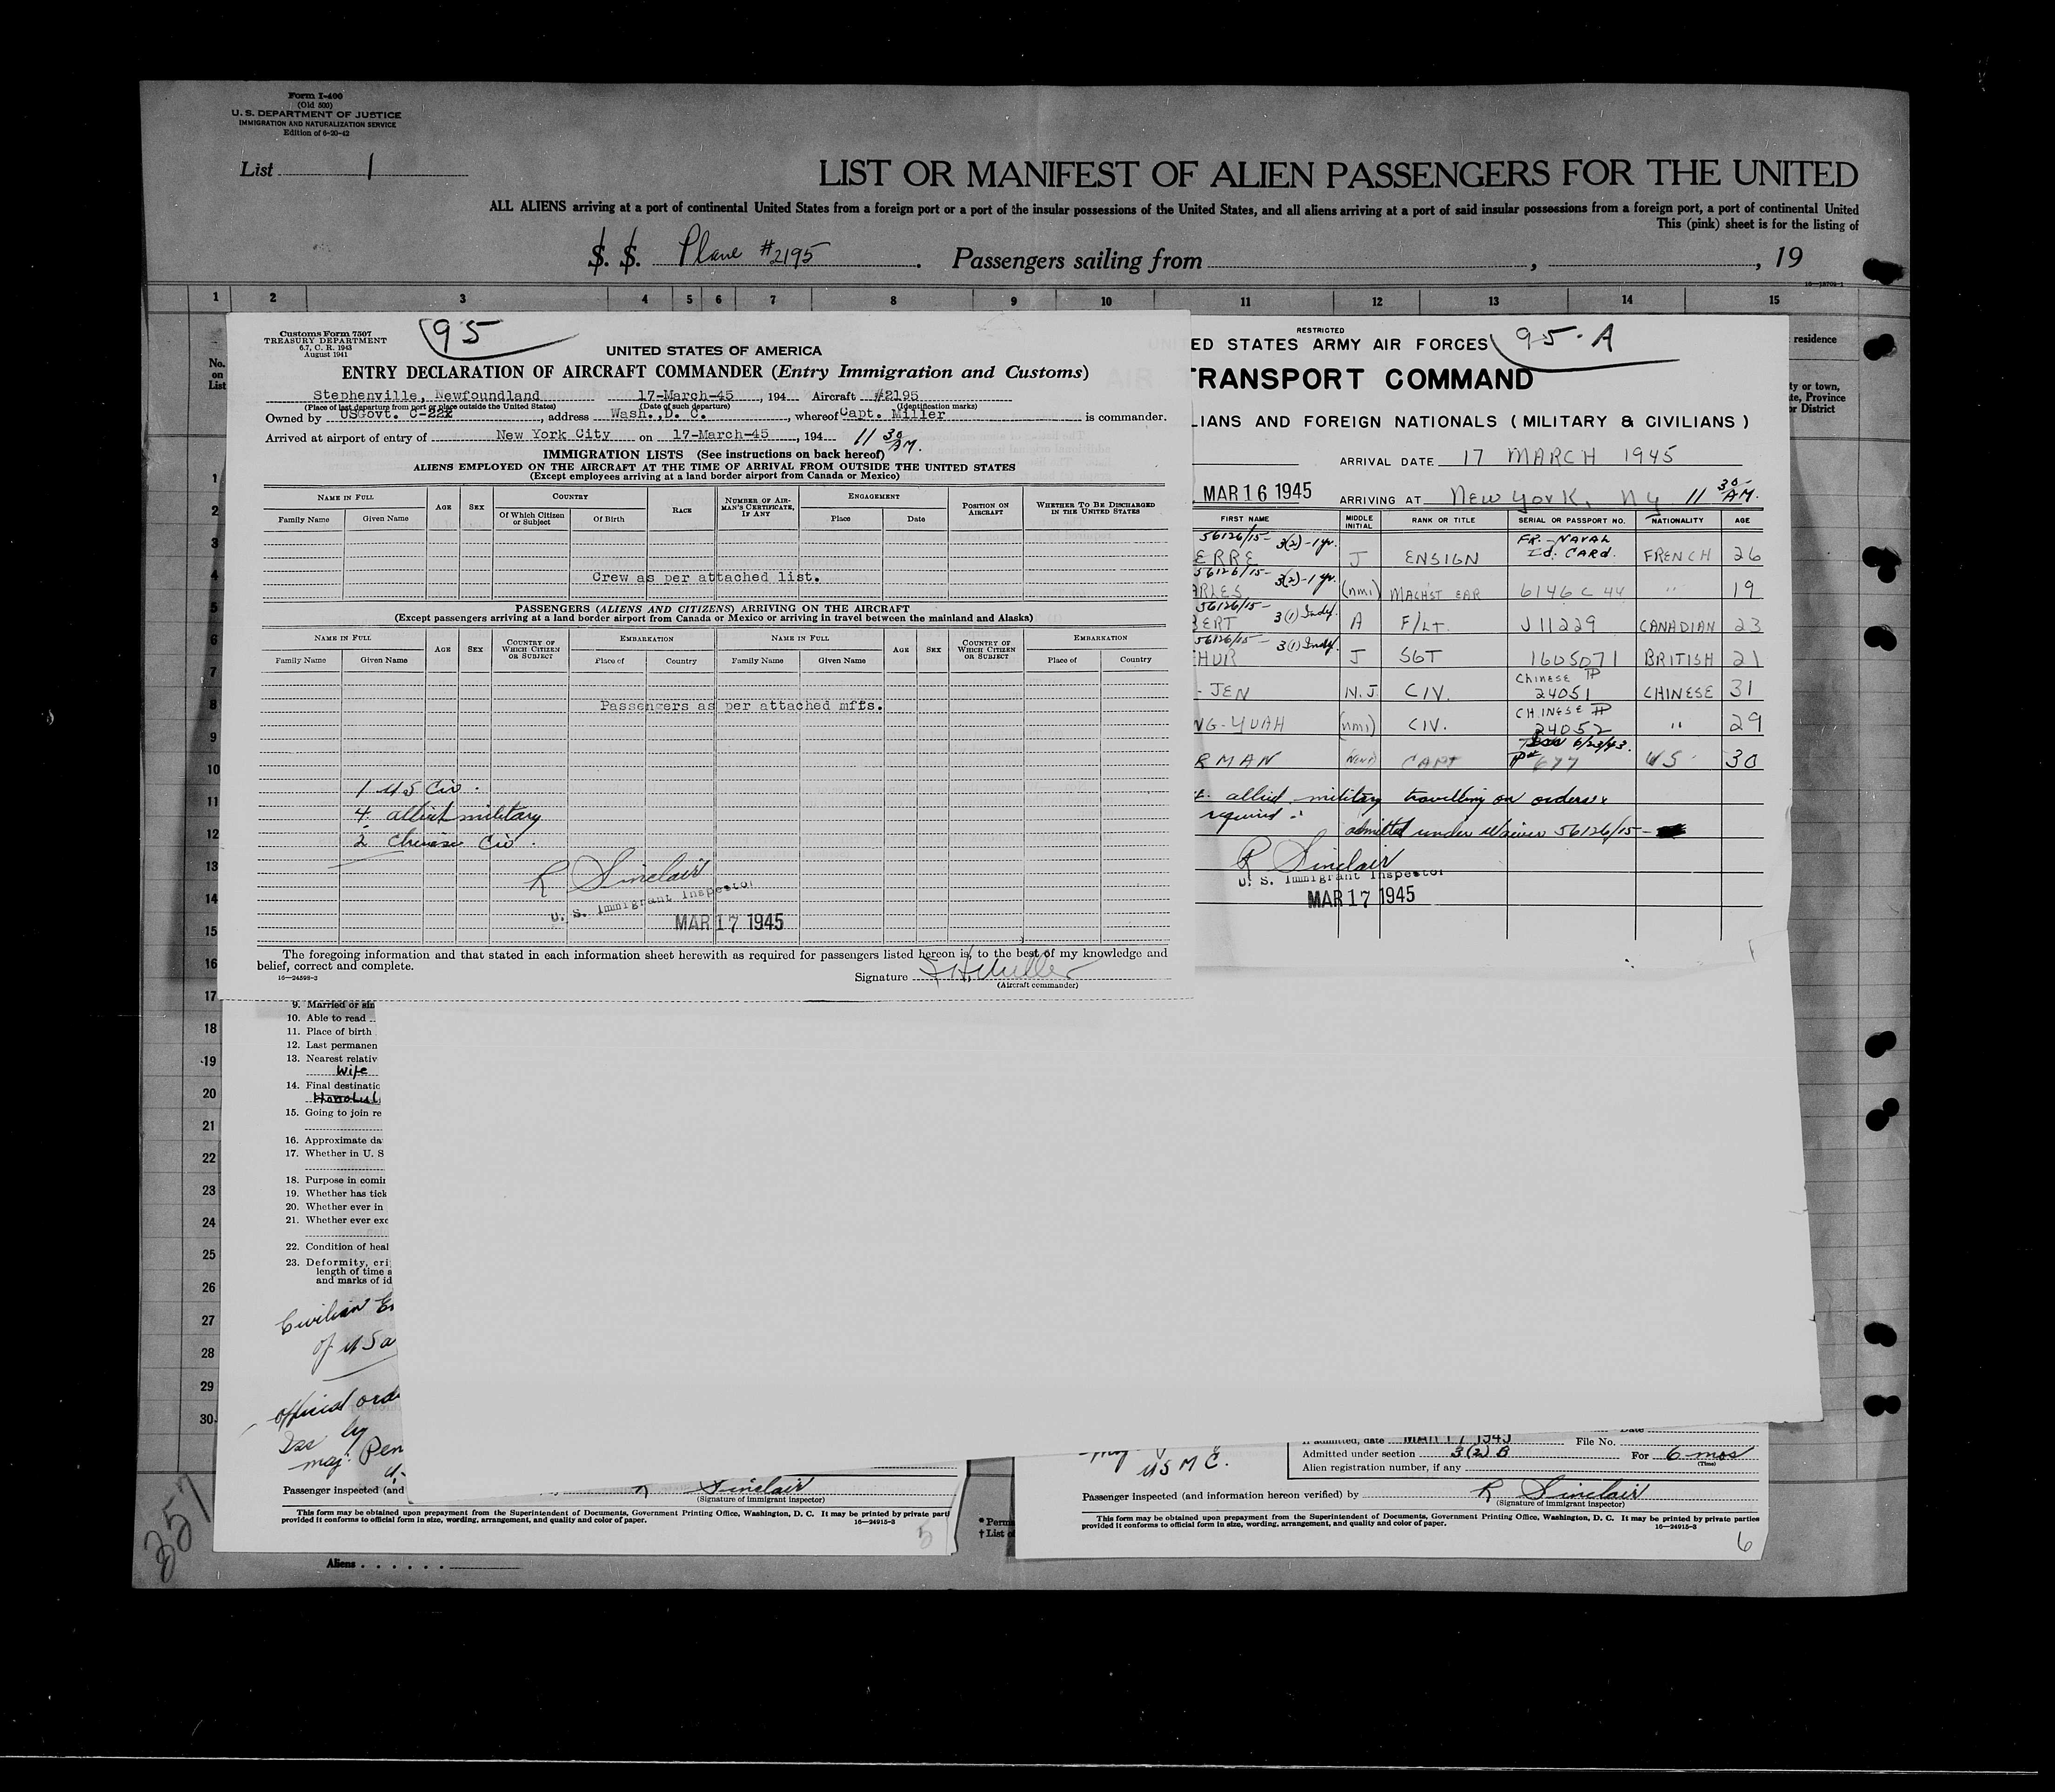 Form I-400
(Old 500)
U. S. DEPARTMENT OF JUSTICE
IMMIGRATION AND NATURALIZATION SERVICE
Edition of 6-20-42
List 1
LIST OR MANIFEST OF ALIEN PASSENGERS FOR THE UNITED
ALL ALIENS arriving at a port of continental United States from a foreign port or a port of the insular possessions of the United States, and all aliens arriving at a port of said insular possessions from a foreign port, a port of continental United
This (pink) sheet is for the listing of
S. S. Plane #2195. Passengers sailing from , , 19
1 2 3 4 5 6 7 8 9 10 11 12 13 14 15
No. on List
residence
ty or town,
te, Province
or District
Customs Form 7507
TREASURY DEPARTMENT
6.7, C. R. 1943
August 1941
95
UNITED STATES OF AMERICA
ENTRY DECLARATION OF AIRCRAFT COMMANDER (Entry Immigration and Customs)
Stephenville, Newfoundland 17-March-45, 194 Aircraft #2195
(Place of last departure from port or place outside the United States) (Date of such departure) (Identification marks)
Owned by USGovt. C-22X, address Wash., D. C., whereof Capt. Miller is commander.
Arrived at airport of entry of New York City on 17-March-45, 194 11 30 AM.
IMMIGRATION LISTS (See instructions on back hereof)
ALIENS EMPLOYED ON THE AIRCRAFT AT THE TIME OF ARRIVAL FROM OUTSIDE THE UNITED STATES
(Except employees arriving at a land border airport from Canada or Mexico)
NAME IN FULL AGE SEX COUNTRY RACE NUMBER OF AIRMAN'S CERTIFICATE, IF ANY ENGAGEMENT POSITION ON AIRCRAFT WHETHER TO BE DISCHARGED IN THE UNITED STATES
Family Name Given Name Of Which Citizen or Subject Of Birth Place Date
Crew as per attached list.
PASSENGERS (ALIENS AND CITIZENS) ARRIVING ON THE AIRCRAFT
(Except passengers arriving at a land border airport from Canada or Mexico or arriving in travel between the mainland and Alaska)
NAME IN FULL AGE SEX COUNTRY OF WHICH CITIZEN OR SUBJECT EMBARKATION NAME IN FULL AGE SEX COUNTRY OF WHICH CITIZEN OR SUBJECT EMBARKATION
Family Name Given Name Place of Country Family Name Given Name Place of Country
Passengers as per attached mffs.
1 US Civ.
4 allied military
2 Chinese Civ.
R Sinclair
U. S. Immigrant Inspector
MAR 17 1945
The foregoing information and that stated in each information sheet herewith as required for passengers listed hereon is, to the best of my knowledge and
belief, correct and complete.
16—24598-3
Signature Miller
(Aircraft commander)
RESTRICTED
ED STATES ARMY AIR FORCES 95-A
TRANSPORT COMMAND
LIANS AND FOREIGN NATIONALS ( MILITARY & CIVILIANS )
ARRIVAL DATE 17 MARCH 1945
MAR 16 1945 ARRIVING AT NEW YORK, NY 11 30 AM.
FIRST NAME MIDDLE INITIAL RANK OR TITLE SERIAL OR PASSPORT NO. NATIONALITY AGE
56126/15- 3(2)-1 yr. FR.-NAVAL
ERRE J ENSIGN Id. CARD. FRENCH 26
56126/15- 3(2)-1 yr.
ARLES (nmi) MACHST EAR 6146 C 44 " 19
56126/15- 3(1) Indef.
BERT A F/LT. J11229 CANADIAN 23
56126/15- 3(1) Indef.
HUR J SGT 1605071 BRITISH 21
Chinese PP
-JEN N.J CIV. 24051 CHINESE 31
CHINESE PP
NG-YUAH (nmi) CIV. 24052 " 29
6/23/43.
RMAN CAPT PP# 677 US 30
allied military travelling on orders
required admitted under waiver 56126/15-
R Sinclair
U. S. Immigrant Inspector
MAR 17 1945
1
2
3
4
5
6
7
8
9
10
11
12
13
14
15
16
17
18
19
20
21
22
23
24
25
26
27
28
29
30
9. Married or sin
10. Able to read
11. Place of birth
12. Last permanen
13. Nearest relativ
Wife
14. Final destinatic
Honolul
15. Going to join re
16. Approximate da
17. Whether in U. S
18. Purpose in comin
19. Whether has tick
20. Whether ever in
21. Whether ever exc
22. Condition of heal
23. Deformity, crip
length of time a
and marks of id
Civilian E
of USa
official orde
Iss by
maj. Pen
Passenger inspected (and Sinclair
(Signature of immigrant inspector)
This form may be obtained upon prepayment from the Superintendent of Documents, Government Printing Office, Washington, D. C. It may be printed by private parti
provided it conforms to official form in size, wording, arrangement, and quality and color of paper. 16—24915-3
5
* Perma
† List o
USMC.
If admitted, date MAR 17 1945 File No.
Admitted under section 3(2) B For 6 mos
(Time)
Alien registration number, if any
Passenger inspected (and information hereon verified) by R Sinclair
(Signature of immigrant inspector)
This form may be obtained upon prepayment from the Superintendent of Documents, Government Printing Office, Washington, D. C. It may be printed by private parties
provided it conforms to official form in size, wording, arrangement, and quality and color of paper. 16—24915-3
6
357
Aliens